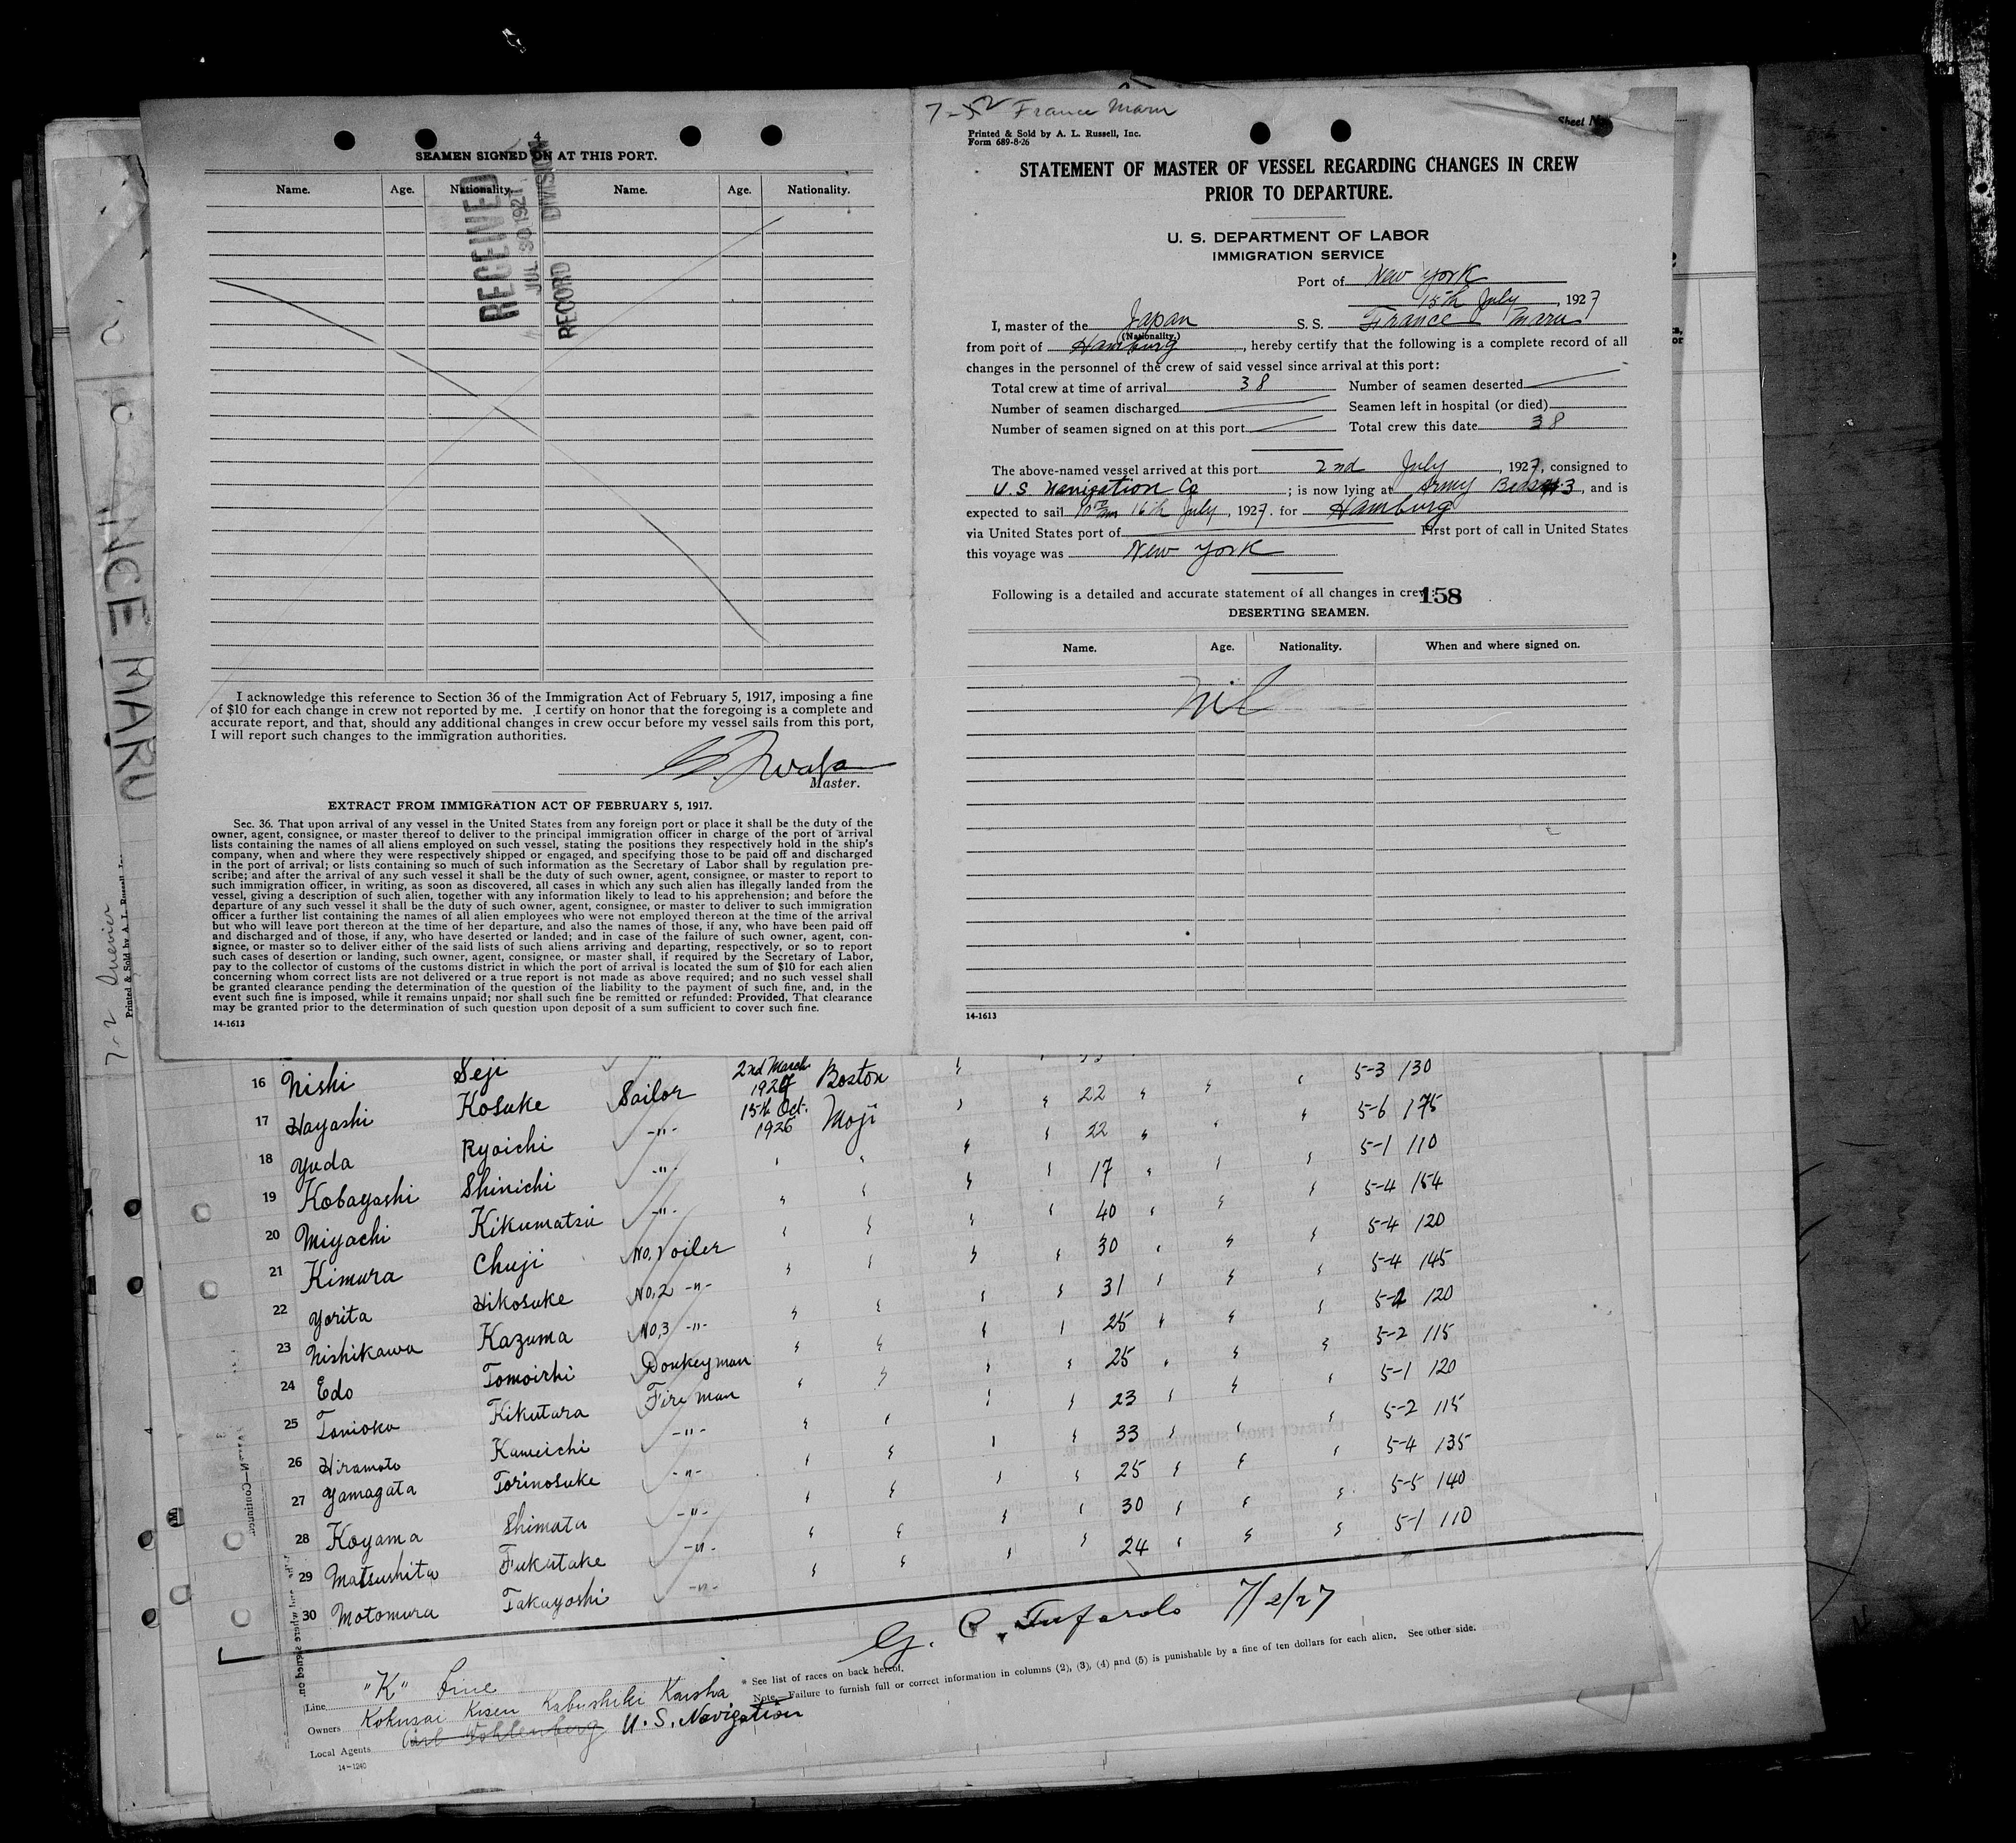 4
SEAMEN SIGNED ON AT THIS PORT.
Name. Age. Nationality. Name. Age. Nationality.
RECEIVED
JUL 30 1927
RECORD DIVISION
I acknowledge this reference to Section 36 of the Immigration Act of February 5, 1917, imposing a fine
of $10 for each change in crew not reported by me. I certify on honor that the foregoing is a complete and
accurate report, and that, should any additional changes in crew occur before my vessel sails from this port,
I will report such changes to the immigration authorities.
Master.
EXTRACT FROM IMMIGRATION ACT OF FEBRUARY 5, 1917.
Sec. 36. That upon arrival of any vessel in the United States from any foreign port or place it shall be the duty of the
owner, agent, consignee, or master thereof to deliver to the principal immigration officer in charge of the port of arrival
lists containing the names of all aliens employed on such vessel, stating the positions they respectively hold in the ship's
company, when and where they were respectively shipped or engaged, and specifying those to be paid off and discharged
in the port of arrival; or lists containing so much of such information as the Secretary of Labor shall by regulation pre-
scribe; and after the arrival of any such vessel it shall be the duty of such owner, agent, consignee, or master to report to
such immigration officer, in writing, as soon as discovered, all cases in which any such alien has illegally landed from the
vessel, giving a description of such alien, together with any information likely to lead to his apprehension; and before the
departure of any such vessel it shall be the duty of such owner, agent, consignee, or master to deliver to such immigration
officer a further list containing the names of all alien employees who were not employed thereon at the time of the arrival
but who will leave port thereon at the time of her departure, and also the names of those, if any, who have been paid off
and discharged and of those, if any, who have deserted or landed; and in case of the failure of such owner, agent, con-
signee, or master so to deliver either of the said lists of such aliens arriving and departing, respectively, or so to report
such cases of desertion or landing, such owner, agent, consignee, or master shall, if required by the Secretary of Labor,
pay to the collector of customs of the customs district in which the port of arrival is located the sum of $10 for each alien
concerning whom correct lists are not delivered or a true report is not made as above required; and no such vessel shall
be granted clearance pending the determination of the question of the liability to the payment of such fine, and, in the
event such fine is imposed, while it remains unpaid; nor shall such fine be remitted or refunded: Provided, That clearance
may be granted prior to the determination of such question upon deposit of a sum sufficient to cover such fine.
14-1613
France Maru
Sheet No.
Printed & Sold by A. L. Russell, Inc.
Form 689-8-26
STATEMENT OF MASTER OF VESSEL REGARDING CHANGES IN CREW
PRIOR TO DEPARTURE.
U. S. DEPARTMENT OF LABOR
IMMIGRATION SERVICE
Port of New York
15th July, 1927
I, master of the Japan S. S. France Maru
(Nationality.)
from port of Hamburg, hereby certify that the following is a complete record of all
changes in the personnel of the crew of said vessel since arrival at this port:
Total crew at time of arrival 38 Number of seamen deserted
Number of seamen discharged Seamen left in hospital (or died)
Number of seamen signed on at this port Total crew this date 38
The above-named vessel arrived at this port 2nd July, 1927, consigned to
U.S. Navigation Co; is now lying at Army Base #3, and is
expected to sail 16th July, 1927. for Hamburg
via United States port of First port of call in United States
this voyage was New York
Following is a detailed and accurate statement of all changes in crew:
158
DESERTING SEAMEN.
Name. Age. Nationality. When and where signed on.
Nil
14-1613
NCE MARU
7-2
Printed & Sold by A. L. Russell, Inc.
16 Nishi Seji 2nd March 1926 Boston 5-3 130
17 Hayashi Kosuke Sailor 15th Oct. 1926 Moji 22 5-6 175
18 Yuda Ryoichi -"- 22 5-1 110
19 Kobayashi Shinichi -"- 17 5-4 154
20 Miyachi Kikumatsu -"- 40 5-4 120
21 Kimura Chuji No.1 oiler 30 5-4 145
22 Yorita Hikosuke No.2 -"- 31 5-2 120
23 Nishikawa Kazuma No.3 -"- 25 5-2 115
24 Edo Tomoichi Donkeyman 25 5-1 120
25 Tanioka Kikutara Fire man 23 5-2 115
26 Hiramoto Kameichi -"- 33 5-4 135
27 Yamagata Torinosuke -"- 25 5-5 140
28 Koyama Shimata -"- 30 5-1 110
29 Matsushita Fukutake -"- 24
30 Motomura Takayoshi -"-
G. C. Tufarolo 7/2/27
* See list of races on back hereof.
Note.—Failure to furnish full or correct information in columns (2), (3), (4) and (5) is punishable by a fine of ten dollars for each alien. See other side.
Line "K" Line
Owners Kokusai Kisen Kabushiki Kaisha
Local Agents U.S. Navigation
14-1240